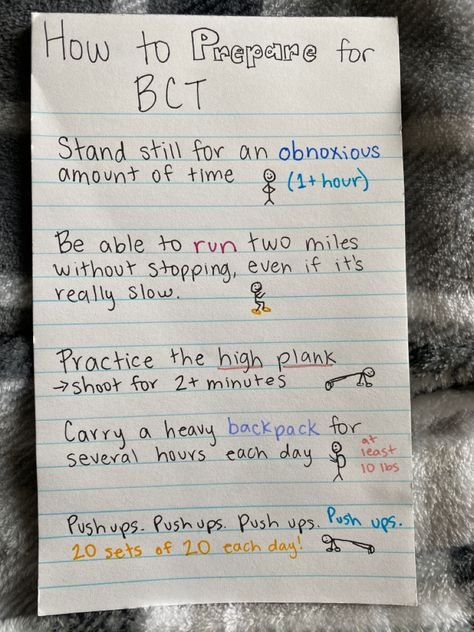 How to Prepare for
BCT
Stand still for an obnoxious
amount of time (1+ hour)
Be able to run two miles
without stopping, even if it's
really slow.
Practice the high plank
→shoot for 2+ minutes
Carry a heavy backpack for
several hours each day
at
least
10 lbs
Push ups. Push ups. Push ups. Push ups.
20 sets of 20 each day!